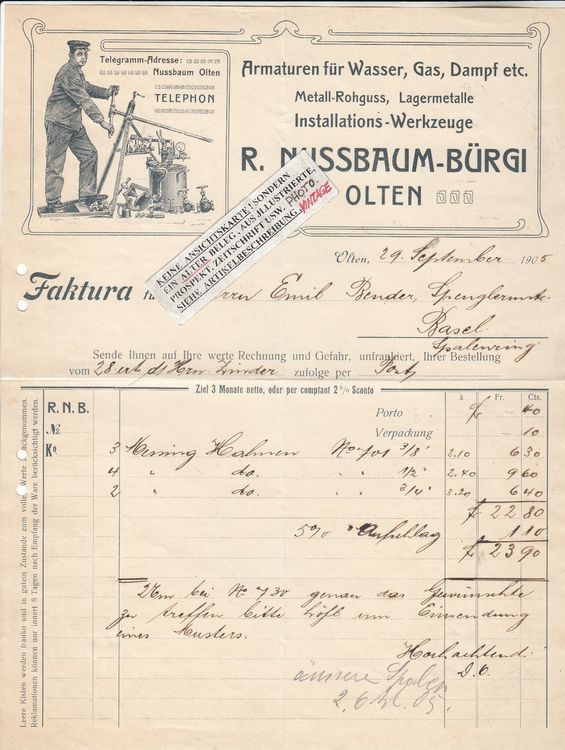 Telegramm-Adresse:
Nussbaum Olten
TELEPHON
Armaturen für Wasser, Gas, Dampf etc.
Metall-Rohguss, Lagermetalle
Installations-Werkzeuge
R. NUSSBAUM-BÜRGI
OLTEN
KEINE ANSICHTSKARTE! SONDERN
EIN ALTER BELEG, AUS JLLUSTRIERTE,
PROSPEKT, ZEITSCHRIFT USW. PHOTO.
SIEHE ARTIKELBESCHREIBUNG. VINTAGE
Olten, 29. September 1905
Faktura Emil Bender, Spenglermstr.
Basel.
Spalenring
Sende Ihnen auf Ihre werte Rechnung und Gefahr, unfrankiert, Ihrer Bestellung
vom 28. ert. d/ Hrn. zufolge per Post
Ziel 3 Monate netto, oder per comptant 2% Sconto
à Fr. Cts.
R. N. B.
Porto . . fr. - 40
No.
Verpackung - 10
Ko
3 Messing Hahnen No 701 3/8" 2.10 6 30
4 " do. " " 1/2" 2.40 9 60
2 " do. " " 3/4" 3.20 6 40
fr. 22 80
5% Aufschlag 1 10
fr. 23 90
Um bei No 730 genau das Gewünschte
zu treffen bitte höfl. um Einsendung
eines Musters.
Hochachtend:
D. O.
äussere Spalen
Leere Kisten werden franko und in gutem Zustande zum vollen Werte zurückgenommen.
Reklamationen können nur innert 8 Tagen nach Empfang der Ware berücksichtigt werden.